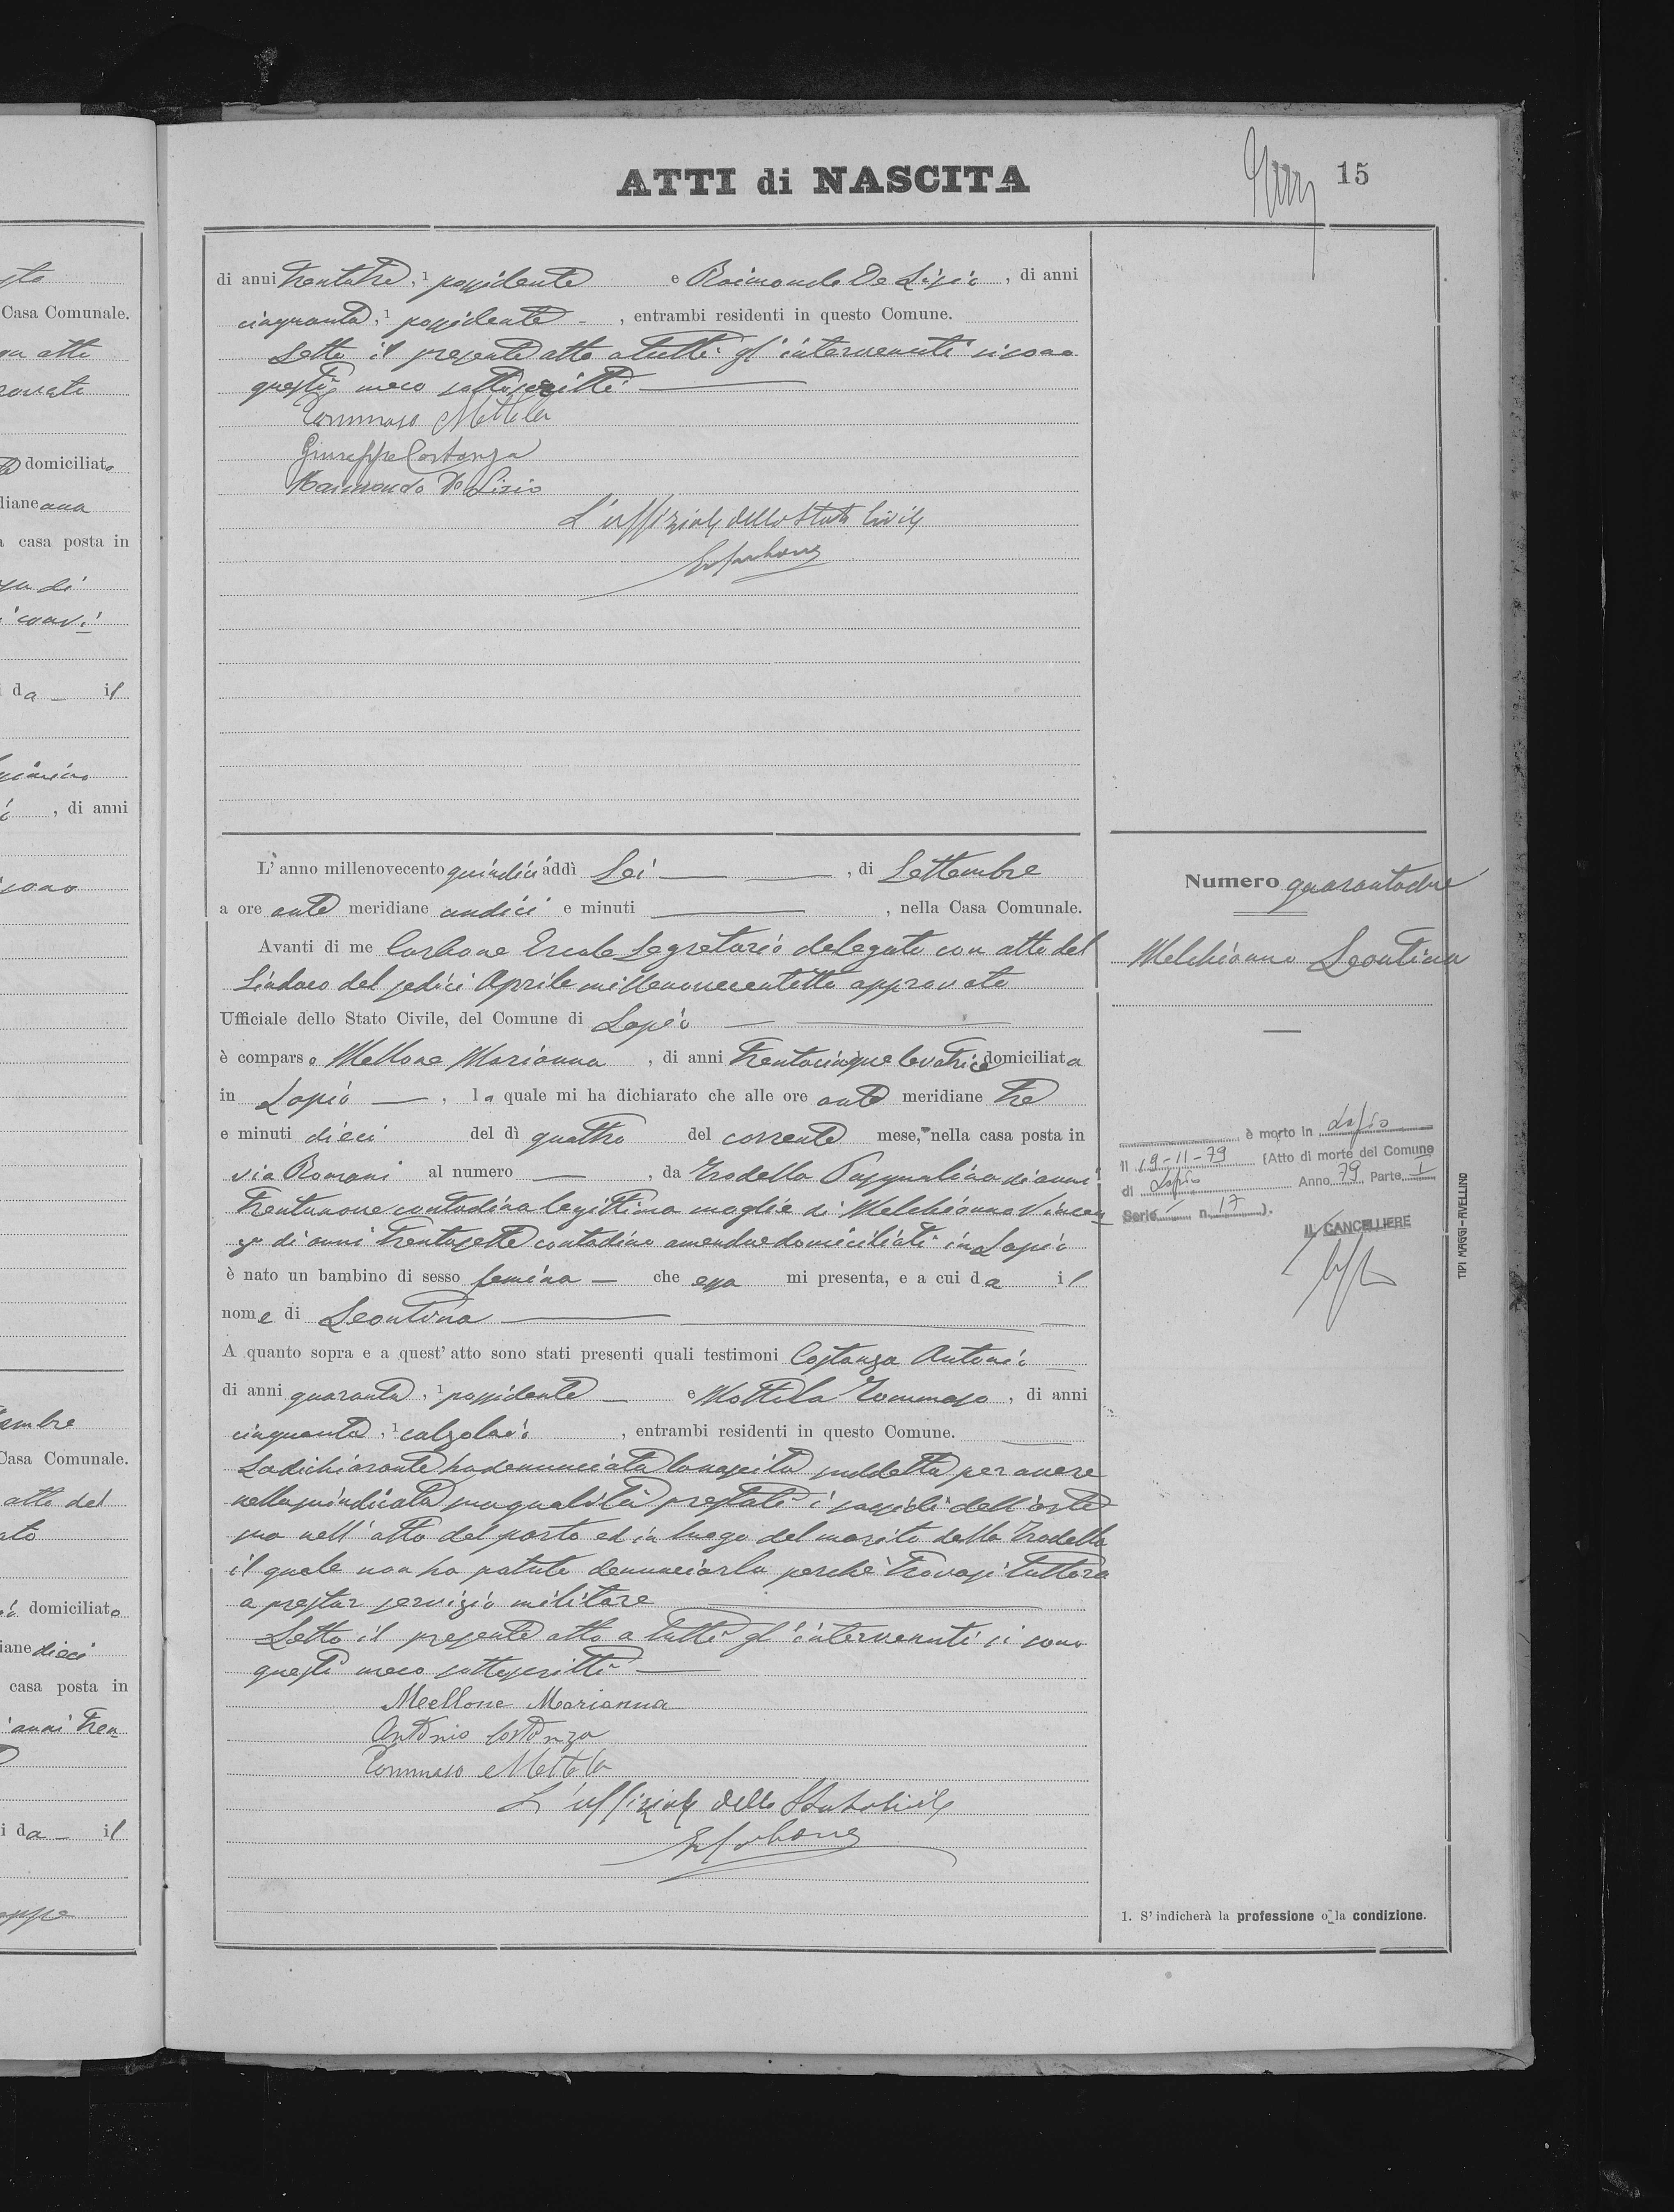 ATTI di NASCITA
15
di anni trentatre, 1 possidente e Raimondo De Lisio, di anni
cinquanta, 1 possidente, entrambi residenti in questo Comune.
Letto il presente atto a tutti gl'intervenuti si sono
questi meco sottoscritti
Tommaso Mottola
Giuseppe Costanza
Raimondo De Lisio
L'uffiziale dello Stato Civile
L'anno millenovecento quindici addì Sei, di Settembre
a ore ante meridiane undici e minuti, nella Casa Comunale.
Avanti di me Carbone Ercole Segretario delegato con atto del
Sindaco del sedici Aprile millenovecentotto approvato
Ufficiale dello Stato Civile, del Comune di Lapio
è comparsa Mellone Marianna, di anni trentacinque levatrice domiciliata
in Lapio, la quale mi ha dichiarato che alle ore ante meridiane tre
e minuti dieci del dì quattro del corrente mese, nella casa posta in
via Romani al numero —, da Trodella Pasqualina di anni
trentanove contadina legittima moglie di Melchionna Vincen
zo di anni trentasette contadino amendue domiciliati in Lapio
è nato un bambino di sesso femina che essa mi presenta, e a cui da il
nome di Leontina
A quanto sopra e a quest'atto sono stati presenti quali testimoni Costanza Antonio
di anni quaranta, 1 possidente e Mottola Tommaso, di anni
cinquanta, 1 calzolaio, entrambi residenti in questo Comune.
La dichiarante ha denunciata la nascita suddetta per avere
nella suindicata sua qualità prestati i sussidi dell'arte
sua nell'atto del parto ed in luogo del marito della Trodella
il quale non ha potuto denunciarla perchè trovasi tuttora
a prestar servizio militare
Letto il presente atto a tutti gl'intervenuti si sono
questi meco sottoscritti
Mellone Marianna
Antonio Costanza
Tommaso Mottola
L'uffiziale dello Stato Civile
Numero quarantadue
Melchionna Leontina
è morto in Lapio
Il 19-11-79 (Atto di morte del Comune
di Lapio Anno 79 Parte I
Serie n. 17).
IL CANCELLIERE
TIPI MAGGI-AVELLINO
1. S'indicherà la professione o la condizione.
sto
Casa Comunale.
atto
domiciliato
casa posta in
da — il
, di anni
Casa Comunale.
atto del
domiciliato
dieci
casa posta in
anni tren
da — il